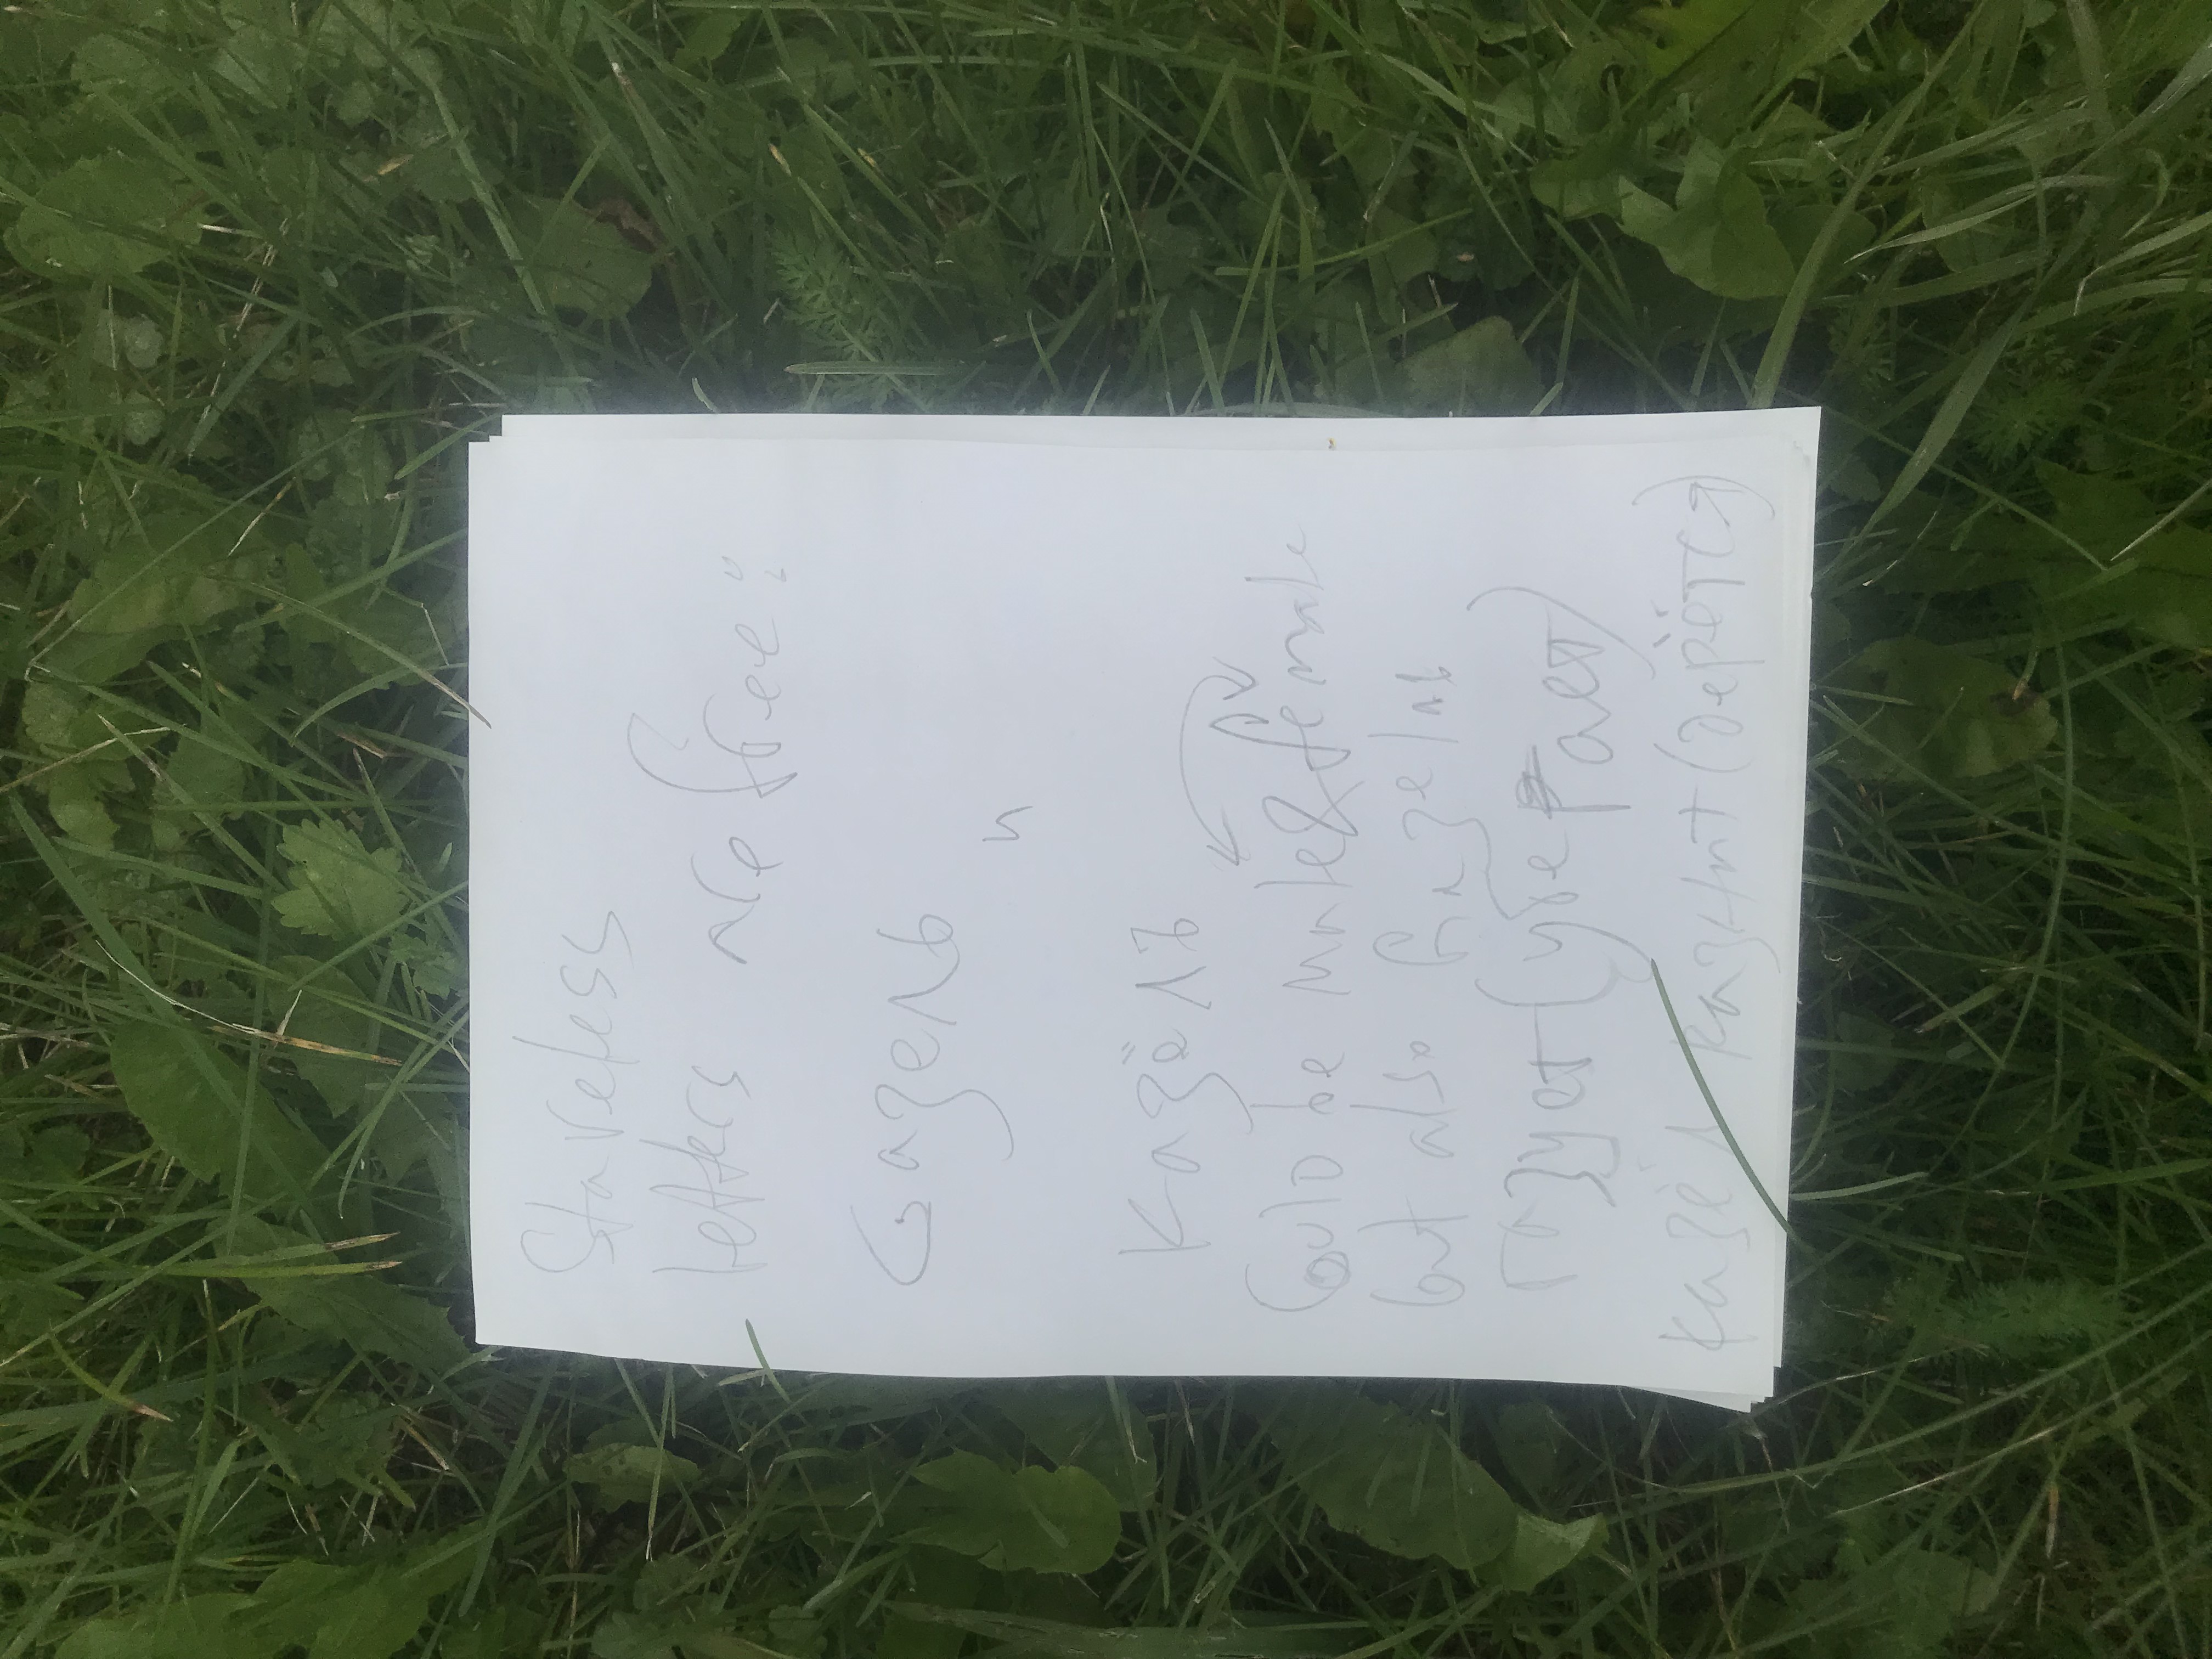 Stareless
letters are free:
Gазель
и
Казёлъ
Could be male & female
but also Gазель
газует (убегает)
казёл казнит (дерётся)